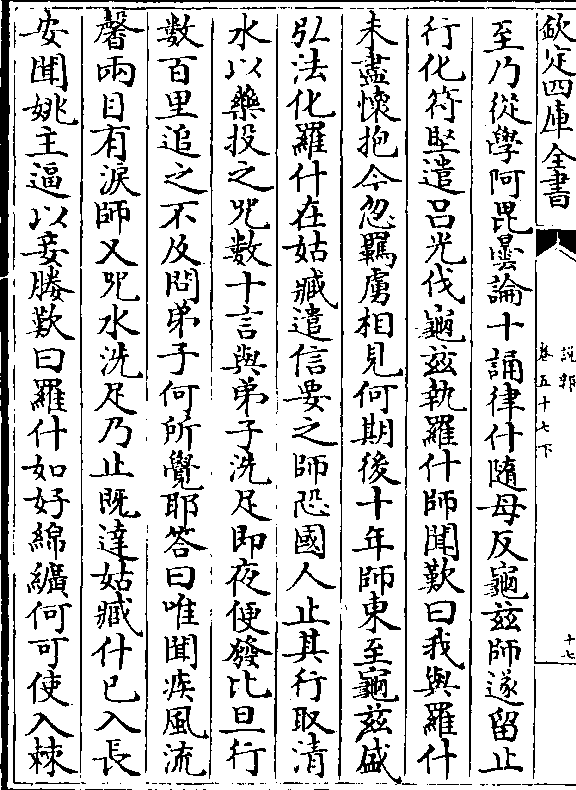 欽定四庫全書
說郛
卷五十七下
十七
至乃從學阿毘曇論十誦律什隨母反龜兹師遂留止
行化符堅遣呂光伐龜兹執羅什師聞歎曰我與羅什
未盡懷抱今忽羈虜相見何期後十年師東至龜兹盛
弘法化羅什在姑臧遣信要之師恐國人止其行取清
水以藥投之呪數十言與弟子洗足即夜便發比旦行
數百里追之不及問弟子何所覺耶答曰唯聞疾風流
馨兩目有淚師又呪水洗足乃止既達姑臧什已入長
安聞姚主逼以妾媵歎曰羅什如好綿纊何可使入棘